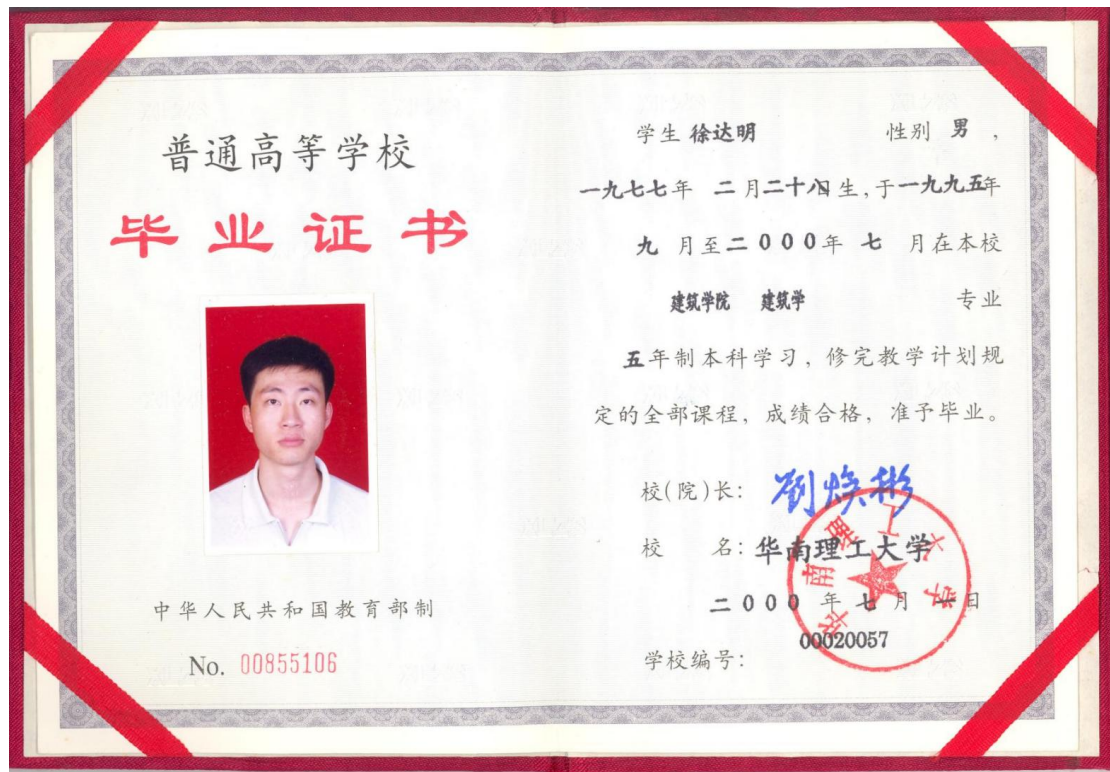 普通高等学校
毕业证书
中华人民共和国教育部制
No. 00855106
学生 徐达明 性别 男 ,
一九七七年 二月二十八日生,于一九九五年
九 月至二000年 七 月在本校
建筑学院 建筑学 专业
五年制本科学习, 修完教学计划规
定的全部课程, 成绩合格, 准予毕业。
校(院)长: 刘焕彬
校 名: 华南理工大学
华南理工大学
二000 年七月一日
00020057
学校编号: